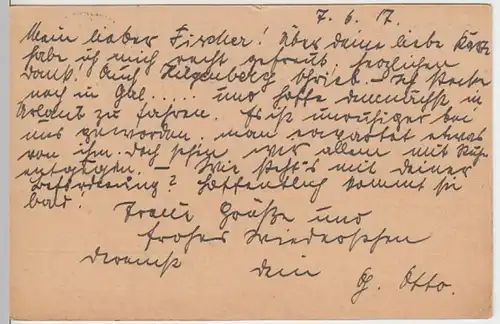 7. 6. 17.
Mein lieber Fischer! Über deine liebe Karte
habe ich mich recht gefreut, herzlichen
Dank! Auch Hilgenberg schrieb. – Ich stecke
noch in Gal..... und hoffe demnächst in
Urlaub zu fahren. Es ist unruhiger bei
uns geworden, man erwartet etwas
von ihm. Doch sehn wir allem mit Ruhe
entgegen. – Wie steht's mit deiner
Beförderung? Hoffentlich kommt sie
bald!
Treue Grüße und
frohes Wiedersehen
dein
Otto.